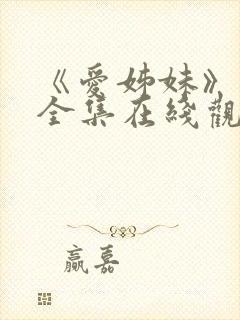 《爱姊妹》
全集在线觀
赢嘉